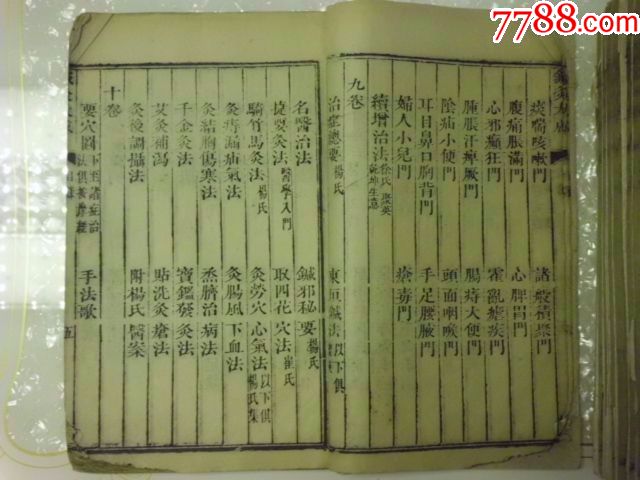 7788.com
痰喘咳嗽門 諸般積聚門
腹痛脹滿門 心脾胃門
心邪癲狂門 霍亂瘧疾門
腫脹汗痺厥門 腸痔大便門
陰疝小便門 頭面咽喉門
耳目鼻口胸背門 手足腰腋門
婦人小兒門 瘡毒門
續增治法 徐氏 聚英 乾坤生意
九卷
治症總要 楊氏 東垣鍼法 以下俱
名醫治法 鍼邪秘要 楊氏
捷要灸法 醫學入門 取四花穴法 崔氏
騎竹馬灸法 楊氏 灸勞穴 心氣法 以下俱楊氏集
灸痔漏疝氣法 灸腸風下血法
灸結胸傷寒法 烝臍治病法
千金灸法 寶鑑發灸法
艾灸補瀉 貼洗灸瘡法
灸後調攝法 附楊氏醫案
十卷
要穴圖 手法歌
五